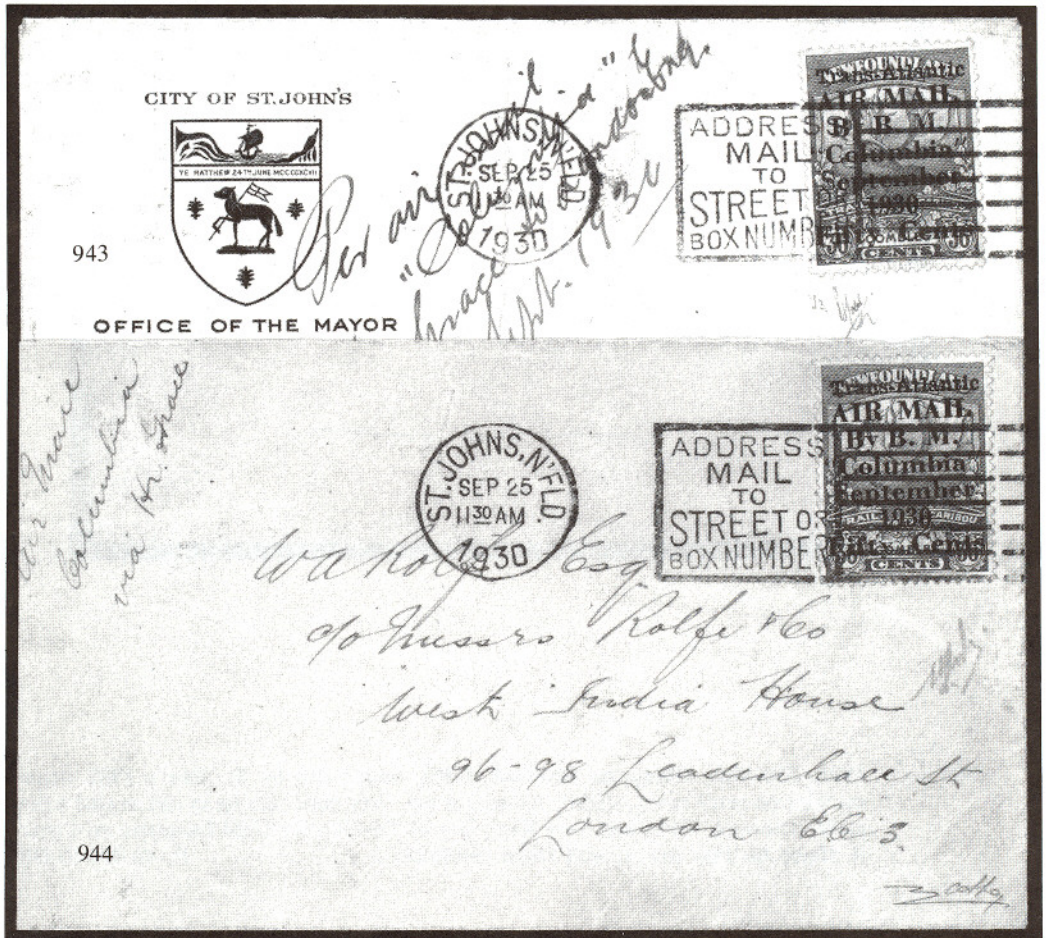 CITY OF ST. JOHN'S
YE MATTHEW 24TH JUNE MCCCCXCVII
943
OFFICE OF THE MAYOR
Per air mail
"Columbia"
Grace to London Eng.
Sept. 1930
ST. JOHNS, N'FLD.
SEP 25
11 30 AM
1930
ADDRESS
MAIL
TO
STREET
BOX NUMBE
NEWFOUNDLA
Trans-Atlantic
AIR MAIL
By B. M.
"Columbia"
September
1930
Fifty Cents
36 36
CENTS
Air Mail
Columbia
via Hr. Grace
ST. JOHNS, N'FLD.
SEP 25
11 30 AM
1930
ADDRESS
MAIL
TO
STREET OR
BOX NUMBER
Trans-Atlantic
AIR MAIL
By B. M.
Columbia
September
1930
Fifty Cents
CENTS
W A Rolfe Esq
c/o Messrs Rolfe & Co
West India House
96-98 Leadenhall St
London EC3.
944